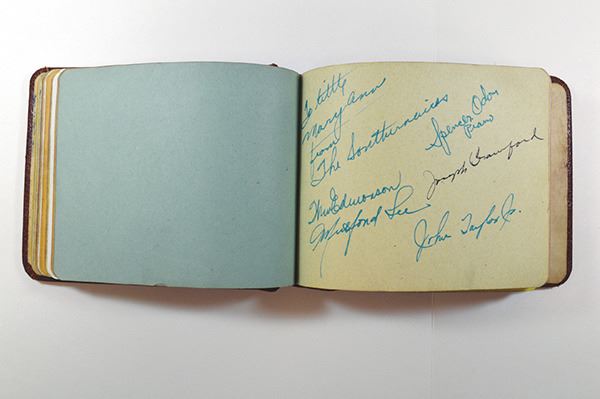 To little
Mary Ann
from
The Southernaires
Wm Edmonson
Spencer Odom
Piano
Joseph Crawford
John Taylor Jr.